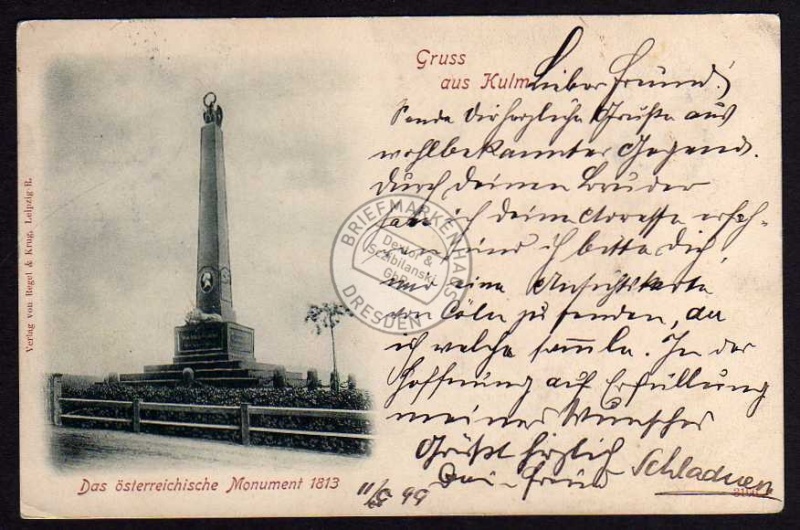 Gruss
aus Kulm
Lieber Freund!
Sende dir herzliche Grüße aus
wohlbekannter Gegend.
Durch deinen Bruder
habe ich deine Adresse erfah-
ren und ich bitte dich,
mir eine Ansichtskarte
von Cöln zu senden, da
ich welche sammle. In der
Hoffnung auf Erfüllung
meines Wunsches
Grüßt herzlich
Dein Freund Schladnen
11/5 99
Das österreichische Monument 1813
Verlag von Regel & Krug, Leipzig-R.
BRIEFMARKENHAUS
Dexlor &
Schibilanski
GbR
DRESDEN